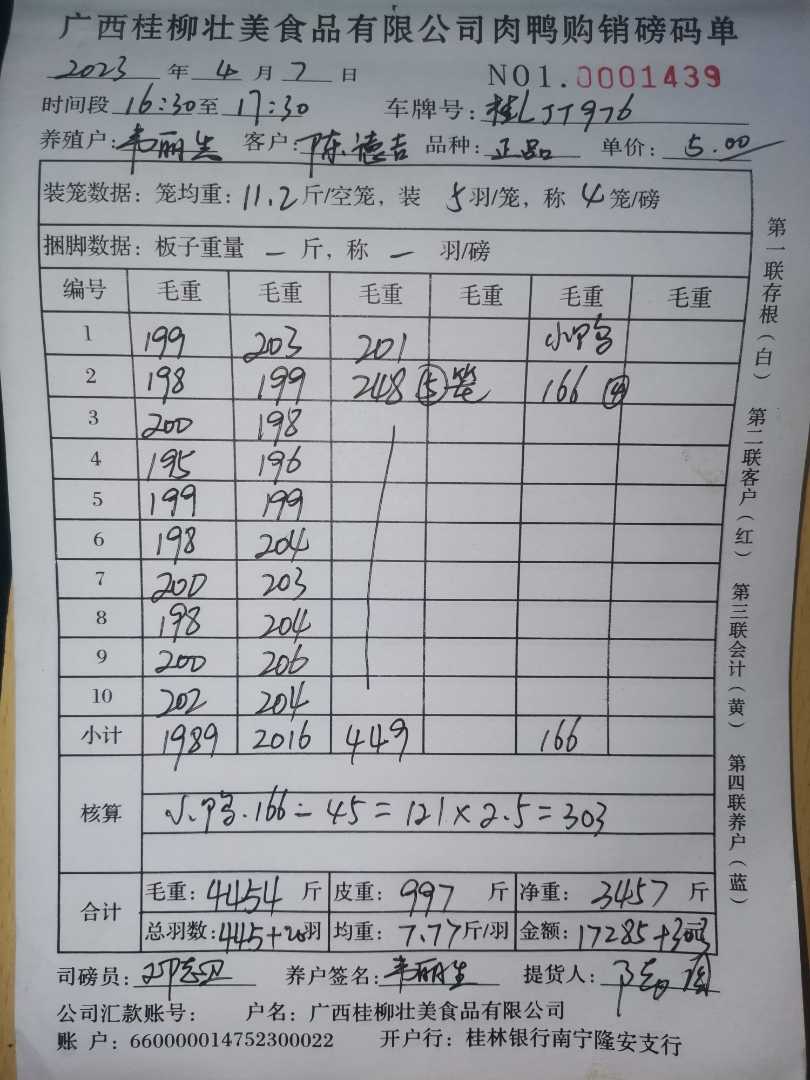 广西桂柳壮美食品有限公司肉鸭购销磅码单
2023 年 4 月 7 日 NO1.0001439
时间段 16:30 至 17:30 车牌号: 桂L JT976
养殖户: 韦丽生 客户: 陈德吉 品种: 正品 单价: 5.00
装笼数据: 笼均重: 11.2 斤/空笼, 装 5 羽/笼, 称 4 笼/磅
捆脚数据: 板子重量 — 斤, 称 — 羽/磅
编号 毛重 毛重 毛重 毛重 毛重 毛重
1 199 203 201 小鸭
2 198 199 248 ⑤笼 166 ④
3 200 198
4 195 196
5 199 199
6 198 204
7 200 203
8 198 204
9 200 206
10 202 204
小计 1989 2016 449 166
核算 小鸭.166-45=121×2.5=303
合计 毛重: 4454 斤 皮重: 997 斤 净重: 3457 斤
总羽数: 445+20羽 均重: 7.77斤/羽 金额: 17285+303
司磅员: 养户签名: 韦丽生 提货人:
公司汇款账号: 户名: 广西桂柳壮美食品有限公司
账 户: 660000014752300022 开户行: 桂林银行南宁隆安支行
第一联存根(白) 第二联客户(红) 第三联会计(黄) 第四联养户(蓝)